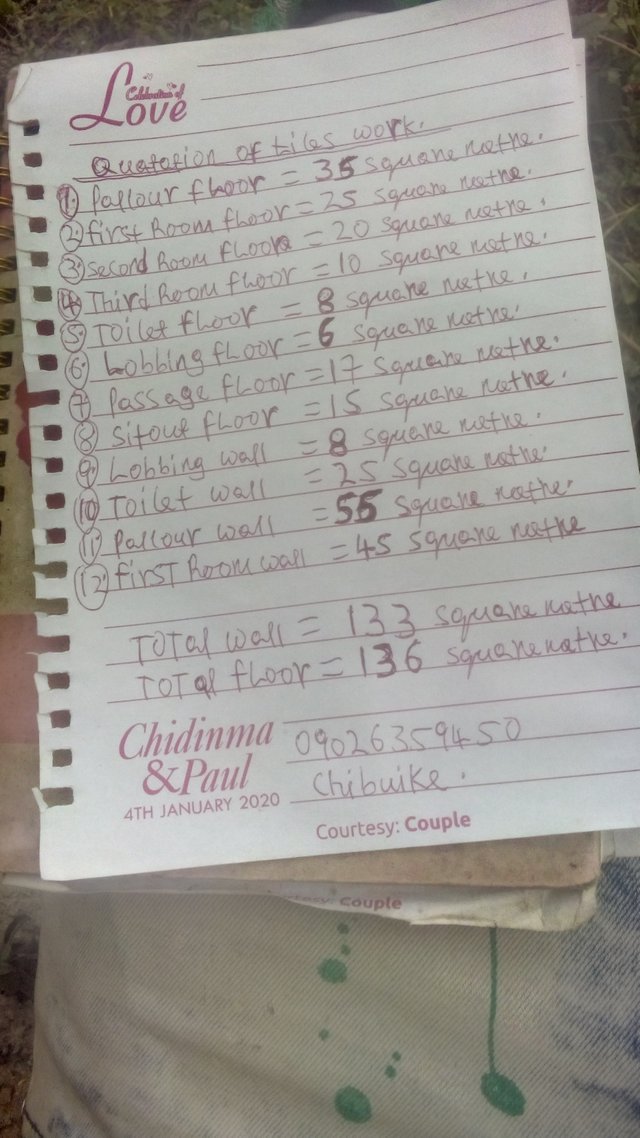 Celebration of
Love
Quatation of tiles work.
1. Pallour floor = 35 square mathe.
2. first Room floor = 25 square mathe.
3. second Room floor = 20 square mathe.
4. Third Room floor = 10 square mathe.
5. Toilet floor = 8 square mathe.
6. Lobbing floor = 6 square mathe.
7 Passage floor = 17 square mathe.
8 sitout floor = 15 square mathe.
9. Lobbing wall = 8 square mathe.
10 Toilet wall = 25 square mathe.
11 Pallour wall = 55 square mathe.
12. first Room wall = 45 square mathe
Total wall = 133 square mathe
Total floor = 136 square mathe.
Chidinma
&Paul
4TH JANUARY 2020
09026359450
Chibuike.
Courtesy: Couple
Couple